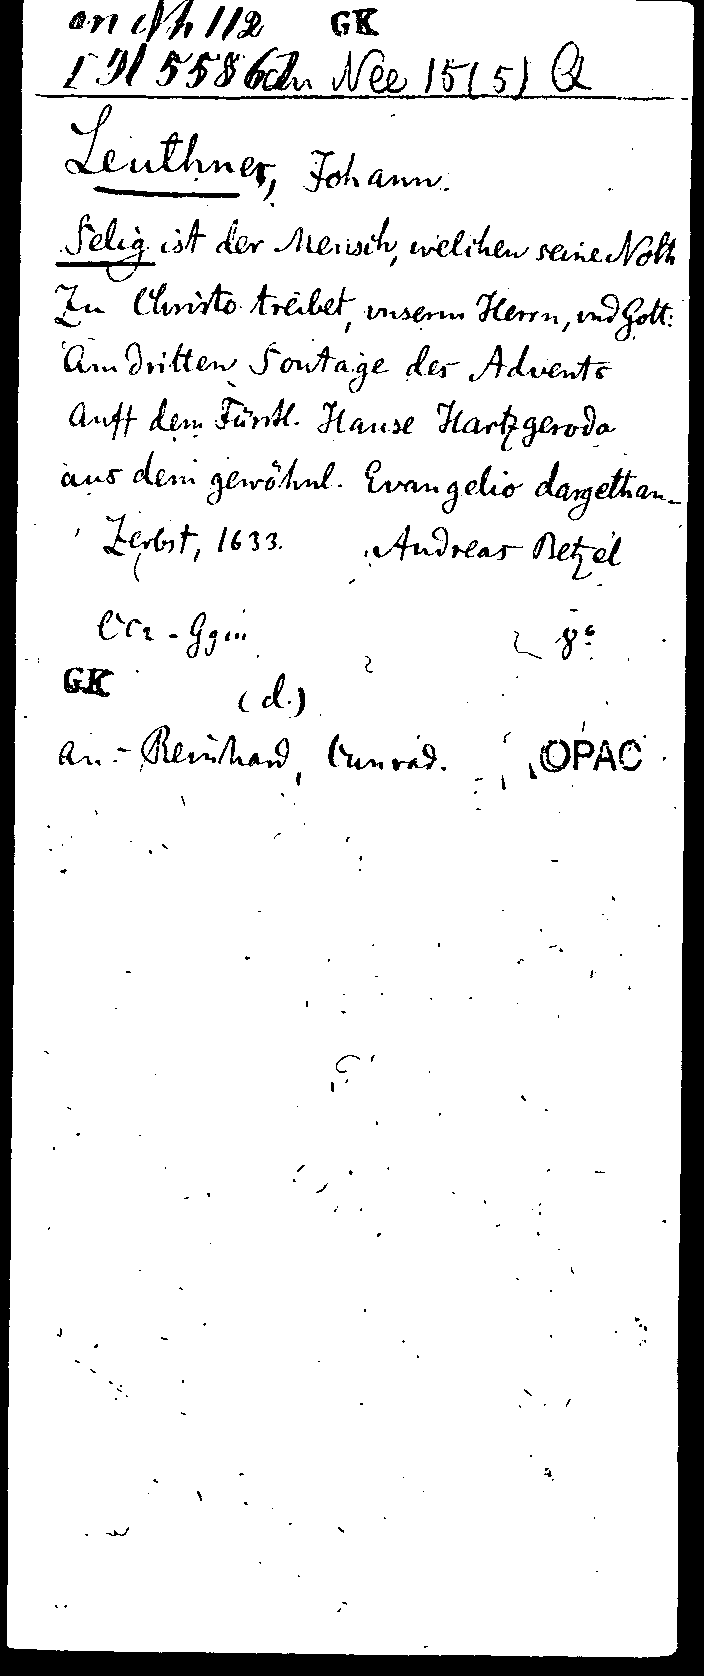 an 112 GK
5586 an Nee 15(5) Q
Leuthner, Johann.
Selig ist der Mensch, welchen seine Noth
Zu Christo treibet, unserm Herrn, und Gott:
Am dritten Sontage des Advents
Auff dem Fürstl. Hause Hartzgeroda
aus dem gewöhnl. Evangelio dargethan.
Zerbst, 1633. Andreas Betzel
8°
GK
(d.)
an:- Reinhard, Cunrad. OPAC